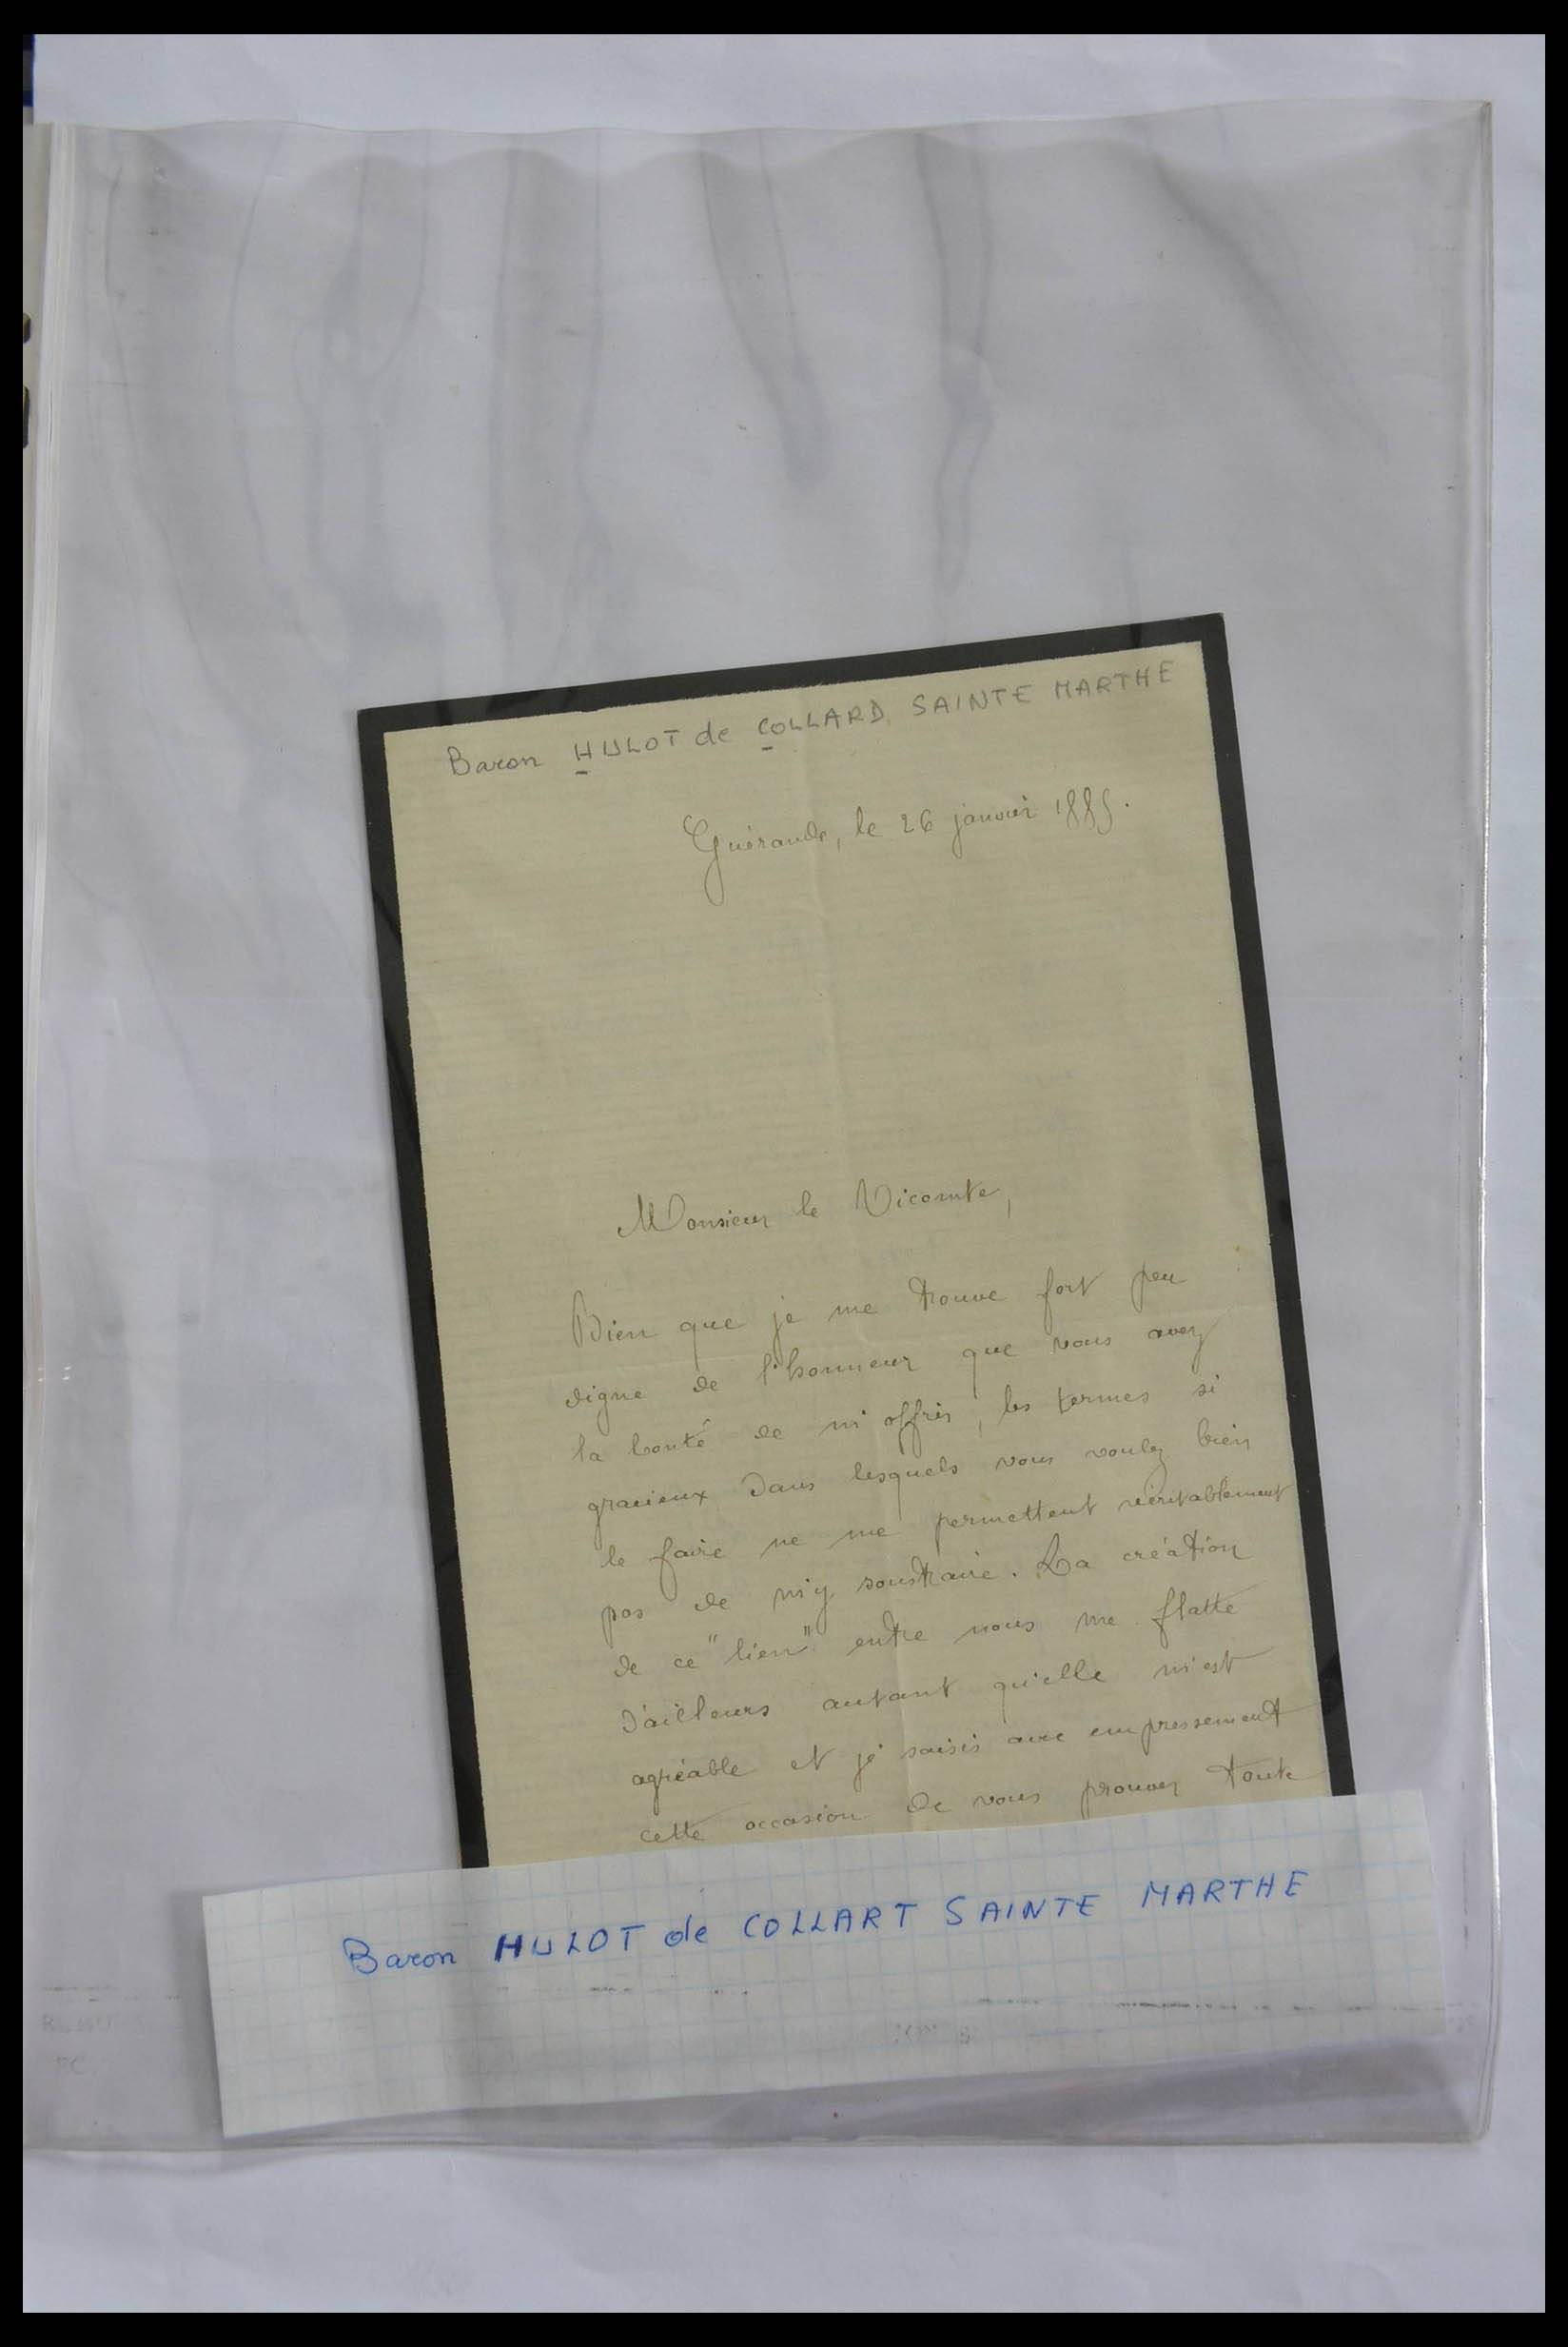 Baron HULOT de COLLARD SAINTE MARTHE
Guérande, le 26 janvier 1885.
Monsieur le Vicomte,
Bien que je me trouve fort peu
digne de l'honneur que vous avez
la bonté de m'offrir, les termes si
gracieux dans lesquels vous voulez bien
le faire ne me permettent véritablement
pas de m'y soustraire. La création
de ce "lien" entre nous me flatte
d'ailleurs autant qu'elle m'est
agréable et je saisis avec empressement
cette occasion de vous prouver toute
Baron HULOT de COLLART SAINTE MARTHE